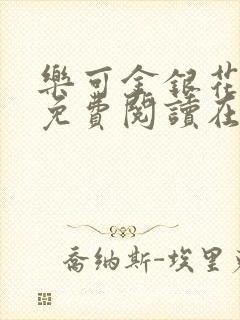 樂可金銀花
免費閱讀在
喬納斯-埃里